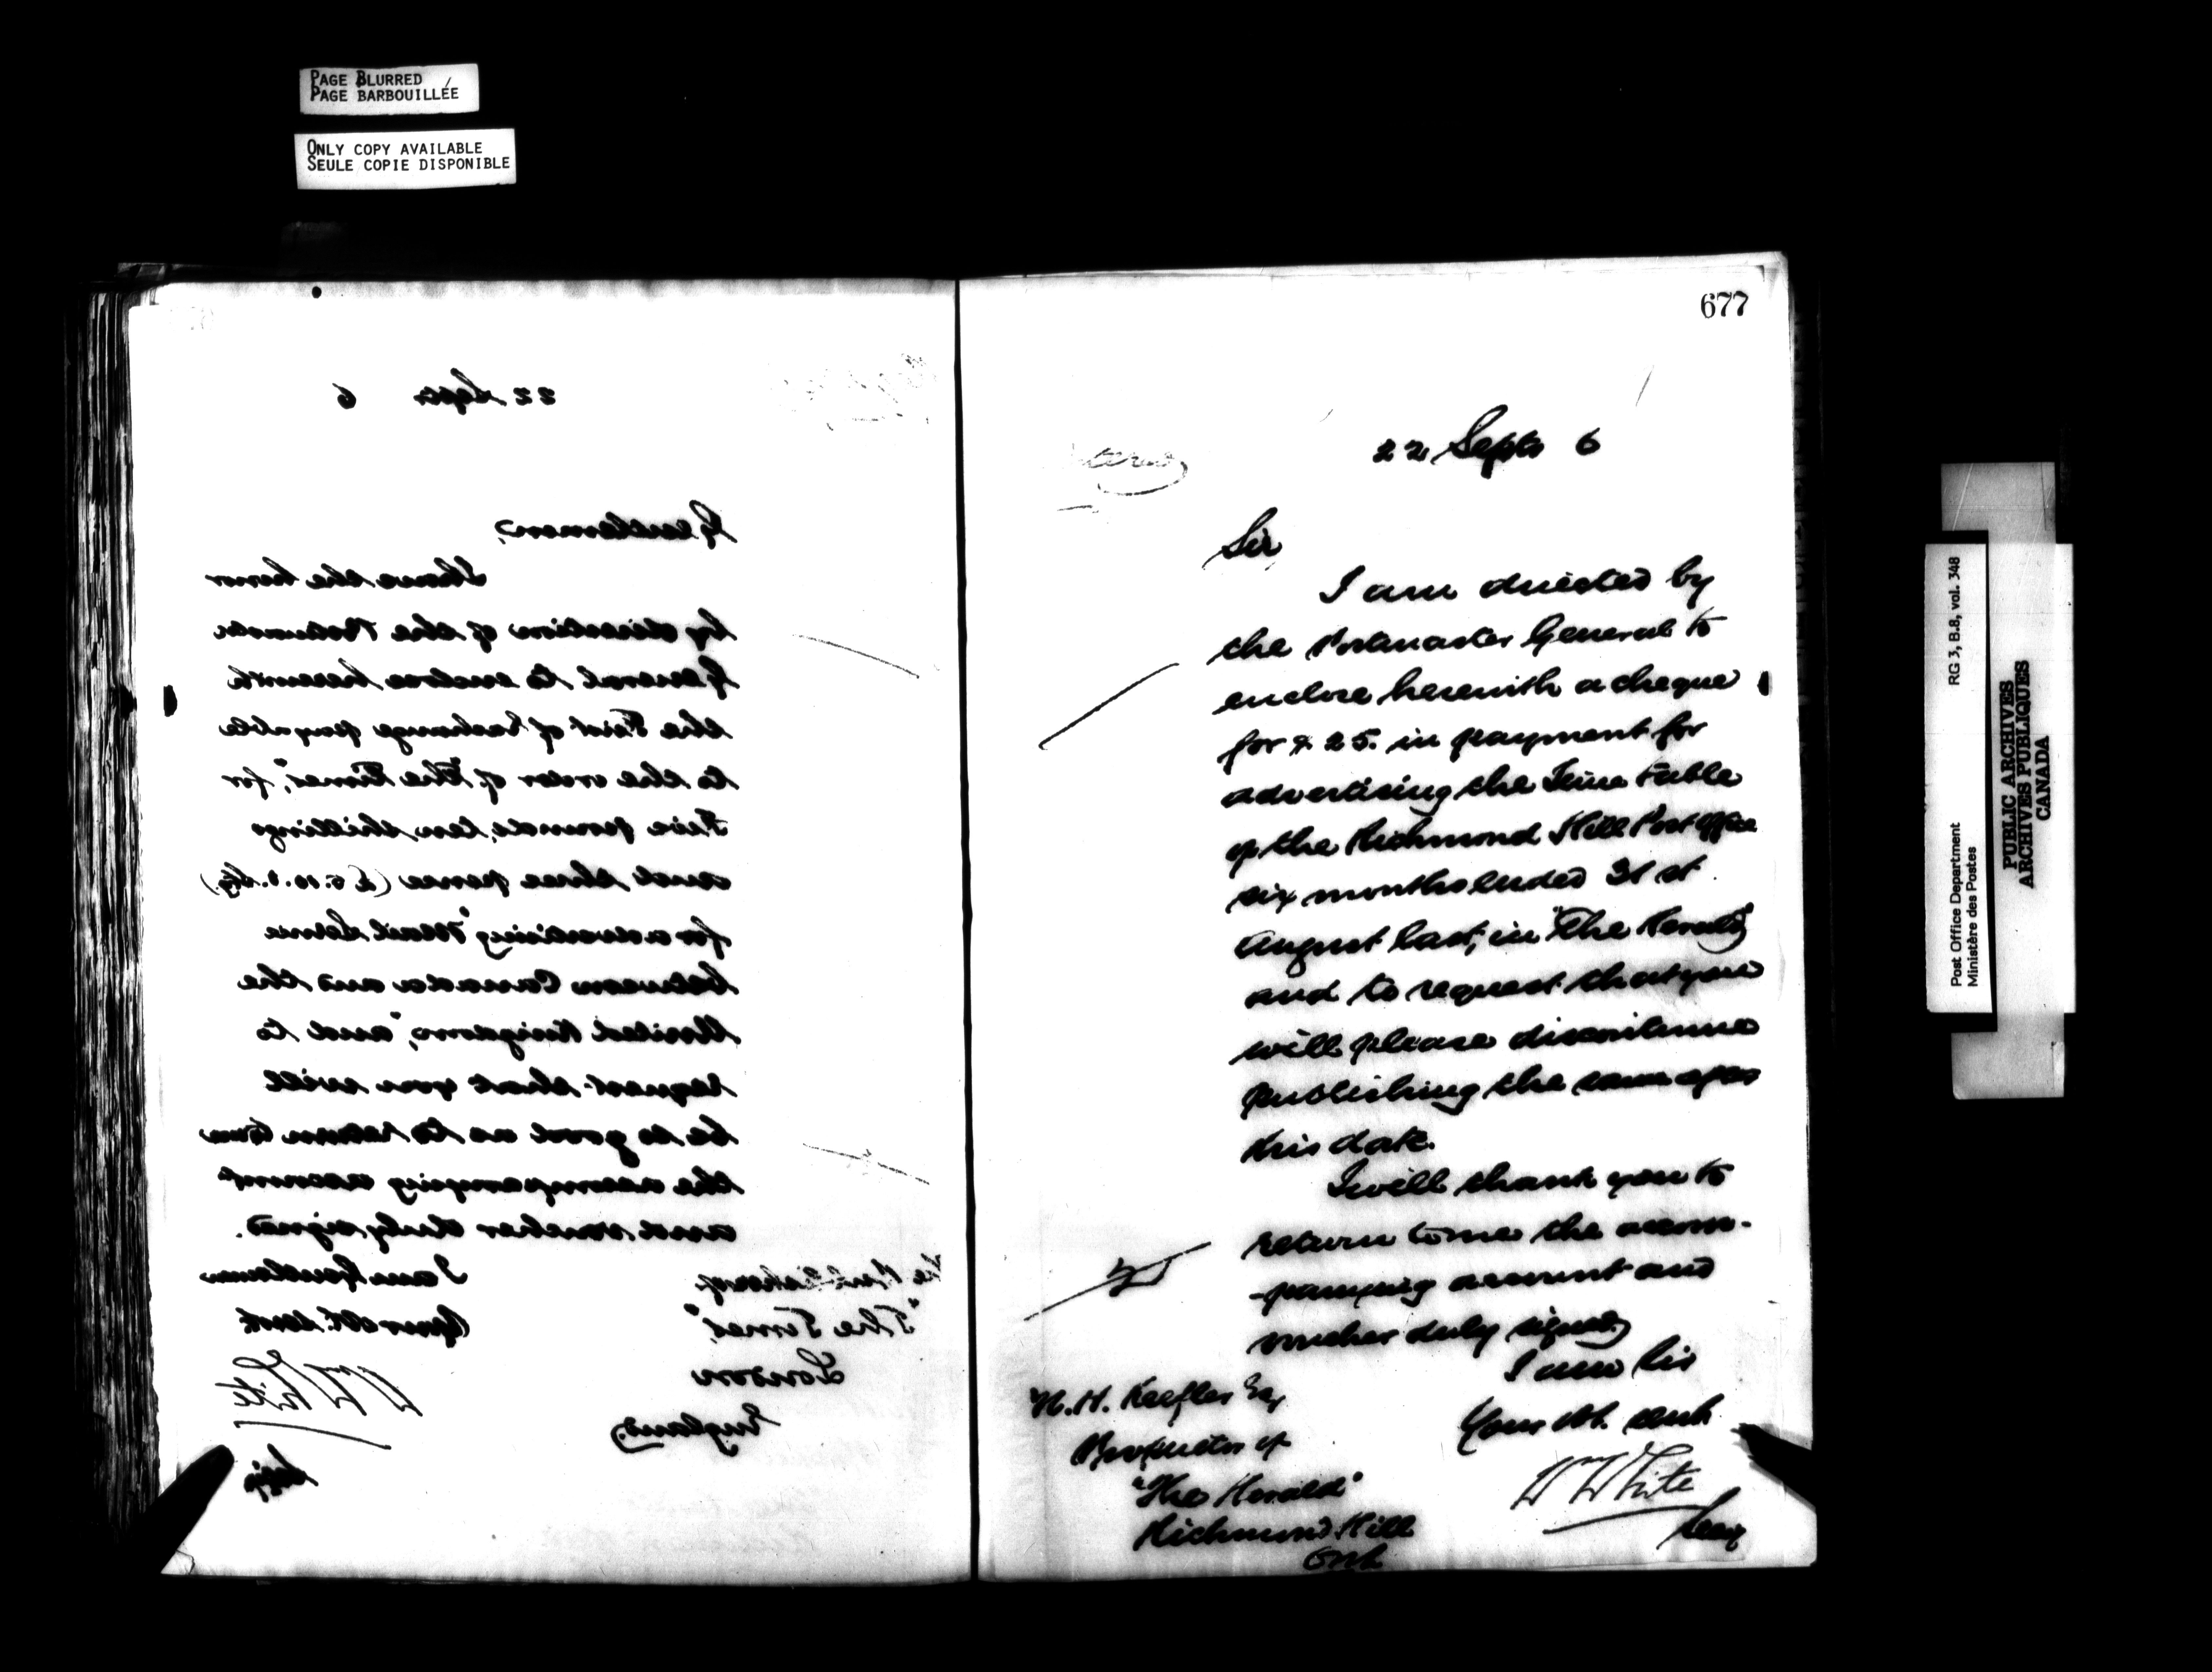 PAGE BLURRED
PAGE BARBOUILLÉE
ONLY COPY AVAILABLE
SEULE COPIE DISPONIBLE
22 Septr 6
Gentlemen,
I have the honor
by direction of the Postmaster
General to enclose herewith
the First of Exchange payable
to the order of "The Times", for
Five pounds, ten shillings
and three pence (£5.10.3. Stg.)
for advertising "Mail Service
between Canada and the
United Kingdom", and to
request that you will
be so good as to return to me
the accompanying account
and voucher duly signed.
I am Gentlemen
Your Ob. Servt.
The Publishers of
"The Times"
London
England.
W White
Secy
677
22 Septr 6
Sir,
I am directed by
the Postmaster General to
enclose herewith a cheque
for $25. in payment for
advertising the Time table
of the Richmond Hill Post Office
six months ended 31st
August last, in "The Herald"
and to request that you
will please discontinue
publishing the same after
this date.
I will thank you to
return to me the accom-
-panying account and
voucher duly signed.
I am Sir
Your Ob. Servt.
W White
Secy
Keefler Esq
Proprietor of
"The Herald"
Richmond Hill
Ont.
RG 3, B.8, vol. 348
Post Office Department
Ministère des Postes
PUBLIC ARCHIVES
ARCHIVES PUBLIQUES
CANADA